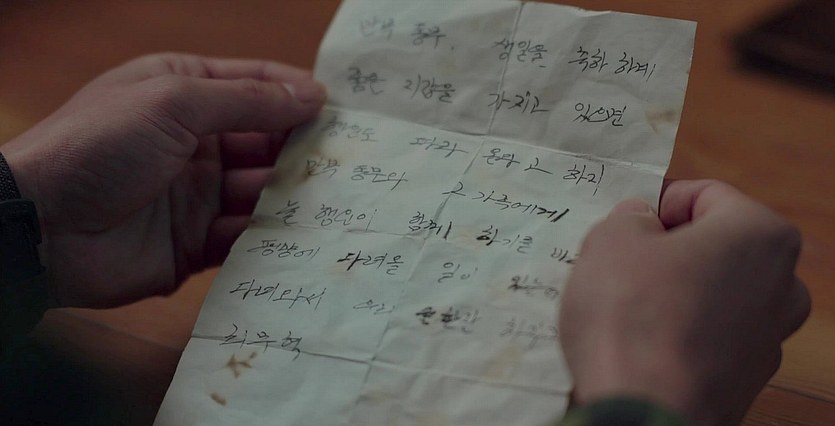 만복 동무, 생일을 축하 하네
좋은 지갑을 가지고 있으면
행운도 따라 온다고 하지
만복 동무와 그 가족에게
늘 행운이 함께 하기를
평양에 다녀올 일이 있는데
다녀와서 우리 술 한잔
최무혁